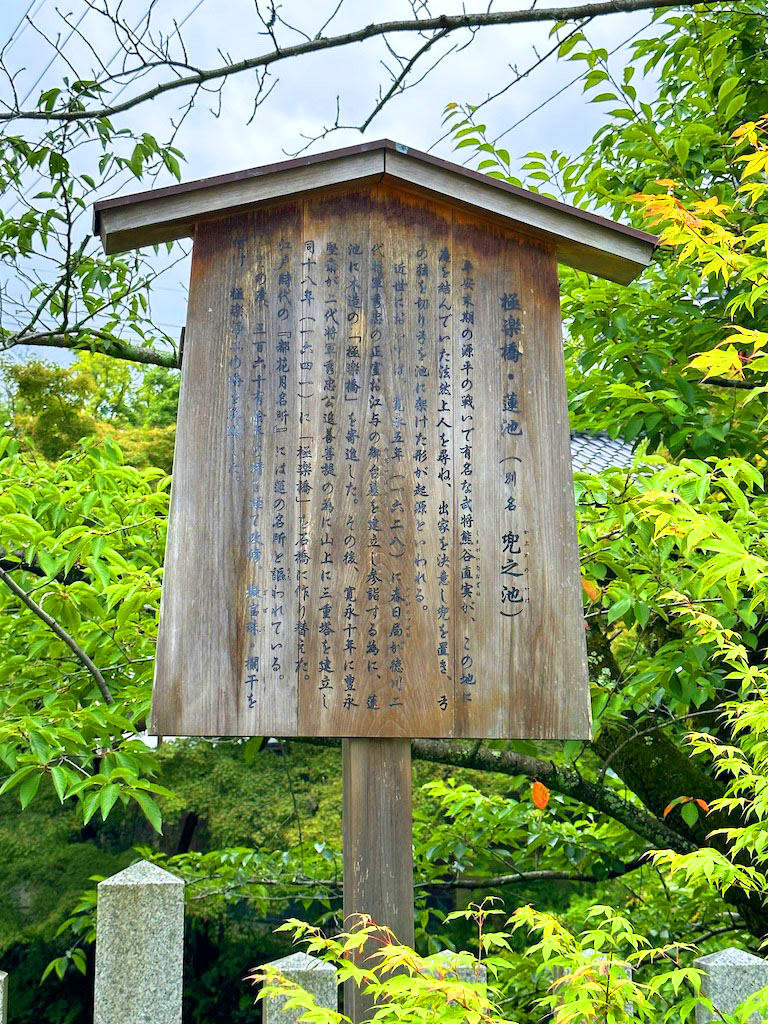 極楽橋・蓮池（別名 兜之池）
平安末期の源平の戦いで有名な武将熊谷直実が、この地に
庵を結んでいた法然上人を尋ね、出家を決意し兜を置き、弓
の弦を切り弓を池に架けた形が起源といわれる。
近世においては 寛永五年（一六二八）に春日局が徳川二
代将軍秀忠の正室お江与の御台墓を建立し参詣する為に、蓮
池に木造の「極楽橋」を寄進した。その後、寛永十年に豊永
堅斎が二代将軍秀忠公追善菩提の為に山上に三重塔を建立し
同十八年（一六四一）に「極楽橋」も石橋に作り替えた。
江戸時代の『都花月名所』には蓮の名所と謳われている。
その後、三百六十有余年の時を経て改修 擬宝珠 欄干を
極楽浄土の